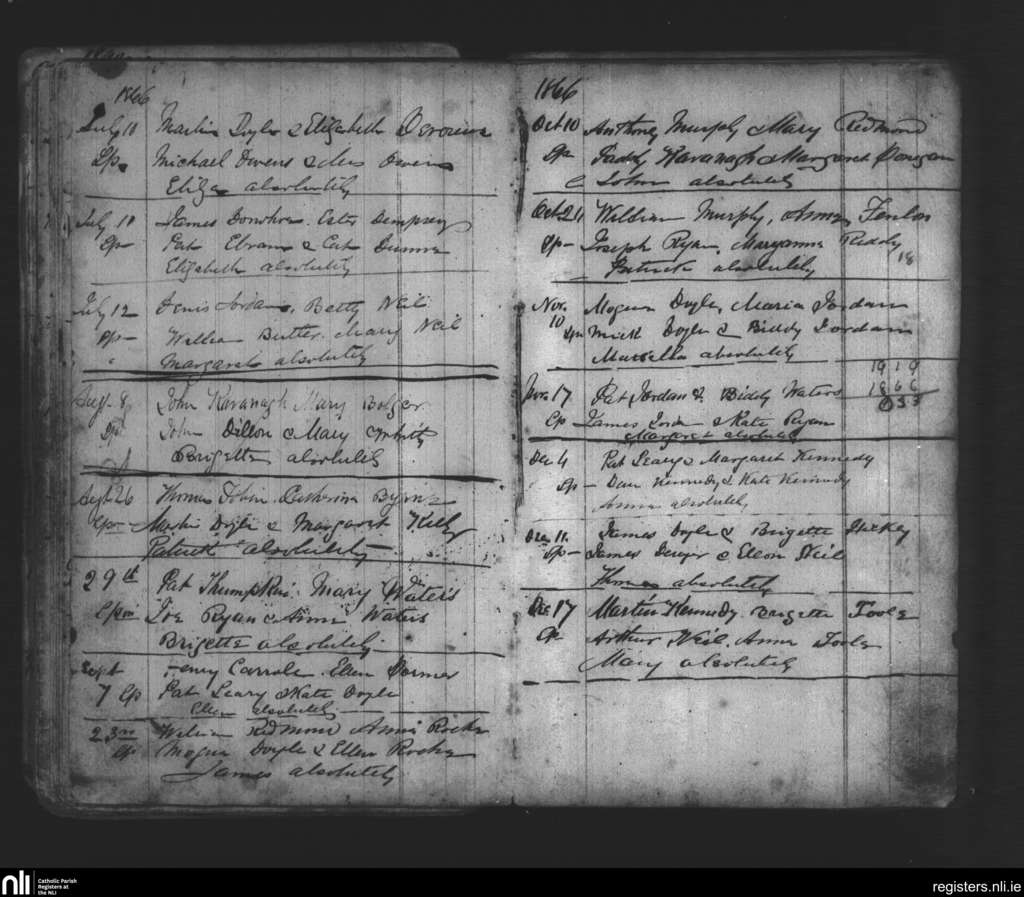 1866
July 10 Martin Doyle & Elizabeth Devereux
Sp. Michael Owens & Mrs Owens
Eliza absolutely
July 11 James Donohoe. Ester Dempsey
Sp- Pat & Cat Dunne
Elizabeth absolutely
July 12 Denis Jordan, Betty Neil
Sp- William Butler. Mary Neil
Margaret absolutely
Aug. 8 John Kavanagh Mary Bolger
Sp John Dillon & Mary
Brigette absolutely
Thomas Tobin. Catherine Byrne
Sp- Martin Doyle & Margaret Kelly
Patrick absolutely
29th Pat Thumpkin. Mary Waters
Spn Joe Ryan & Anne Waters
Brigette absolutely
Sept Henry Carrole. Ellen Dormer
7 Sp Pat Leary & Kate Doyle
Ellen absolutely
23rd William Redmond Annie Roche
Sp Mogue Doyle & Ellen Roche
James absolutely
1866
Oct 10 Anthony Murphy & Mary Redmond
Sp Paddy Kavanagh & Margaret
John absolutely
Oct 21 William Murphy, Anne Fenlon
Sp- Joseph Ryan, Maryanne Reddy
18
Patrick absolutely
Nov. Mogue Doyle, Maria Jordan
10 Spn Mick Doyle & Biddy Jordan
Marcella absolutely
1919
Nov. 17 Pat Jordan & Biddy Waters 1866
053
Sp James & Kate Ryan
Margaret absolutely
Dec 4 Pat Leary & Margaret Kennedy
Sp- Dan Kennedy & Kate Kennedy
Anne absolutely
Dec 11. James Doyle & Brigette Hickey
Sp- James Dwyer & Ellen Neil
Thomas absolutely
Dec 17 Martin Kennedy. Brigette Toole
Sp Arthur Neil. Anne Toole
Mary absolutely
nli
Catholic Parish
Registers at
the NLI
registers.nli.ie